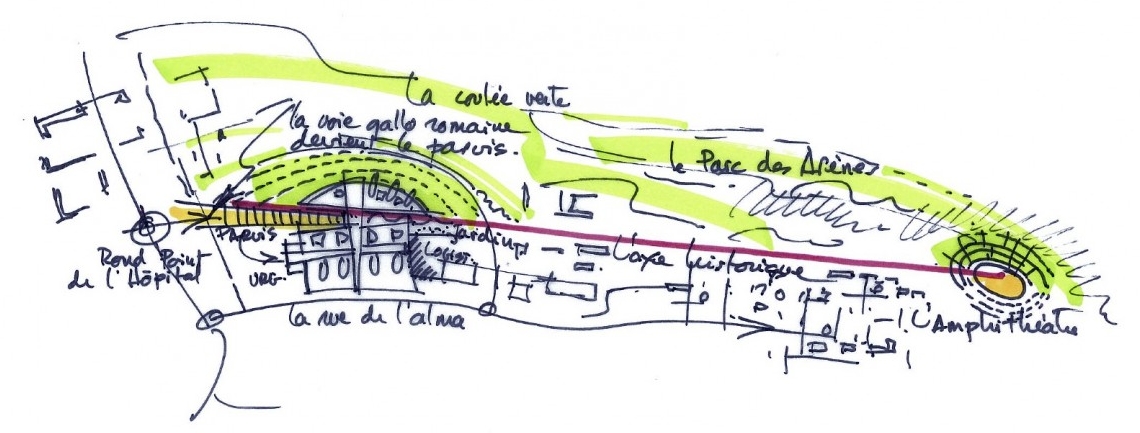 la coulée verte
la voie gallo romaine
devient le parvis.
le Parc des Arènes
PARVIS
Jardins
Rond Point
de l'Hôpital
URG.
Logist.
l'axe historique
la rue de l'alma
L'Amphithéatre